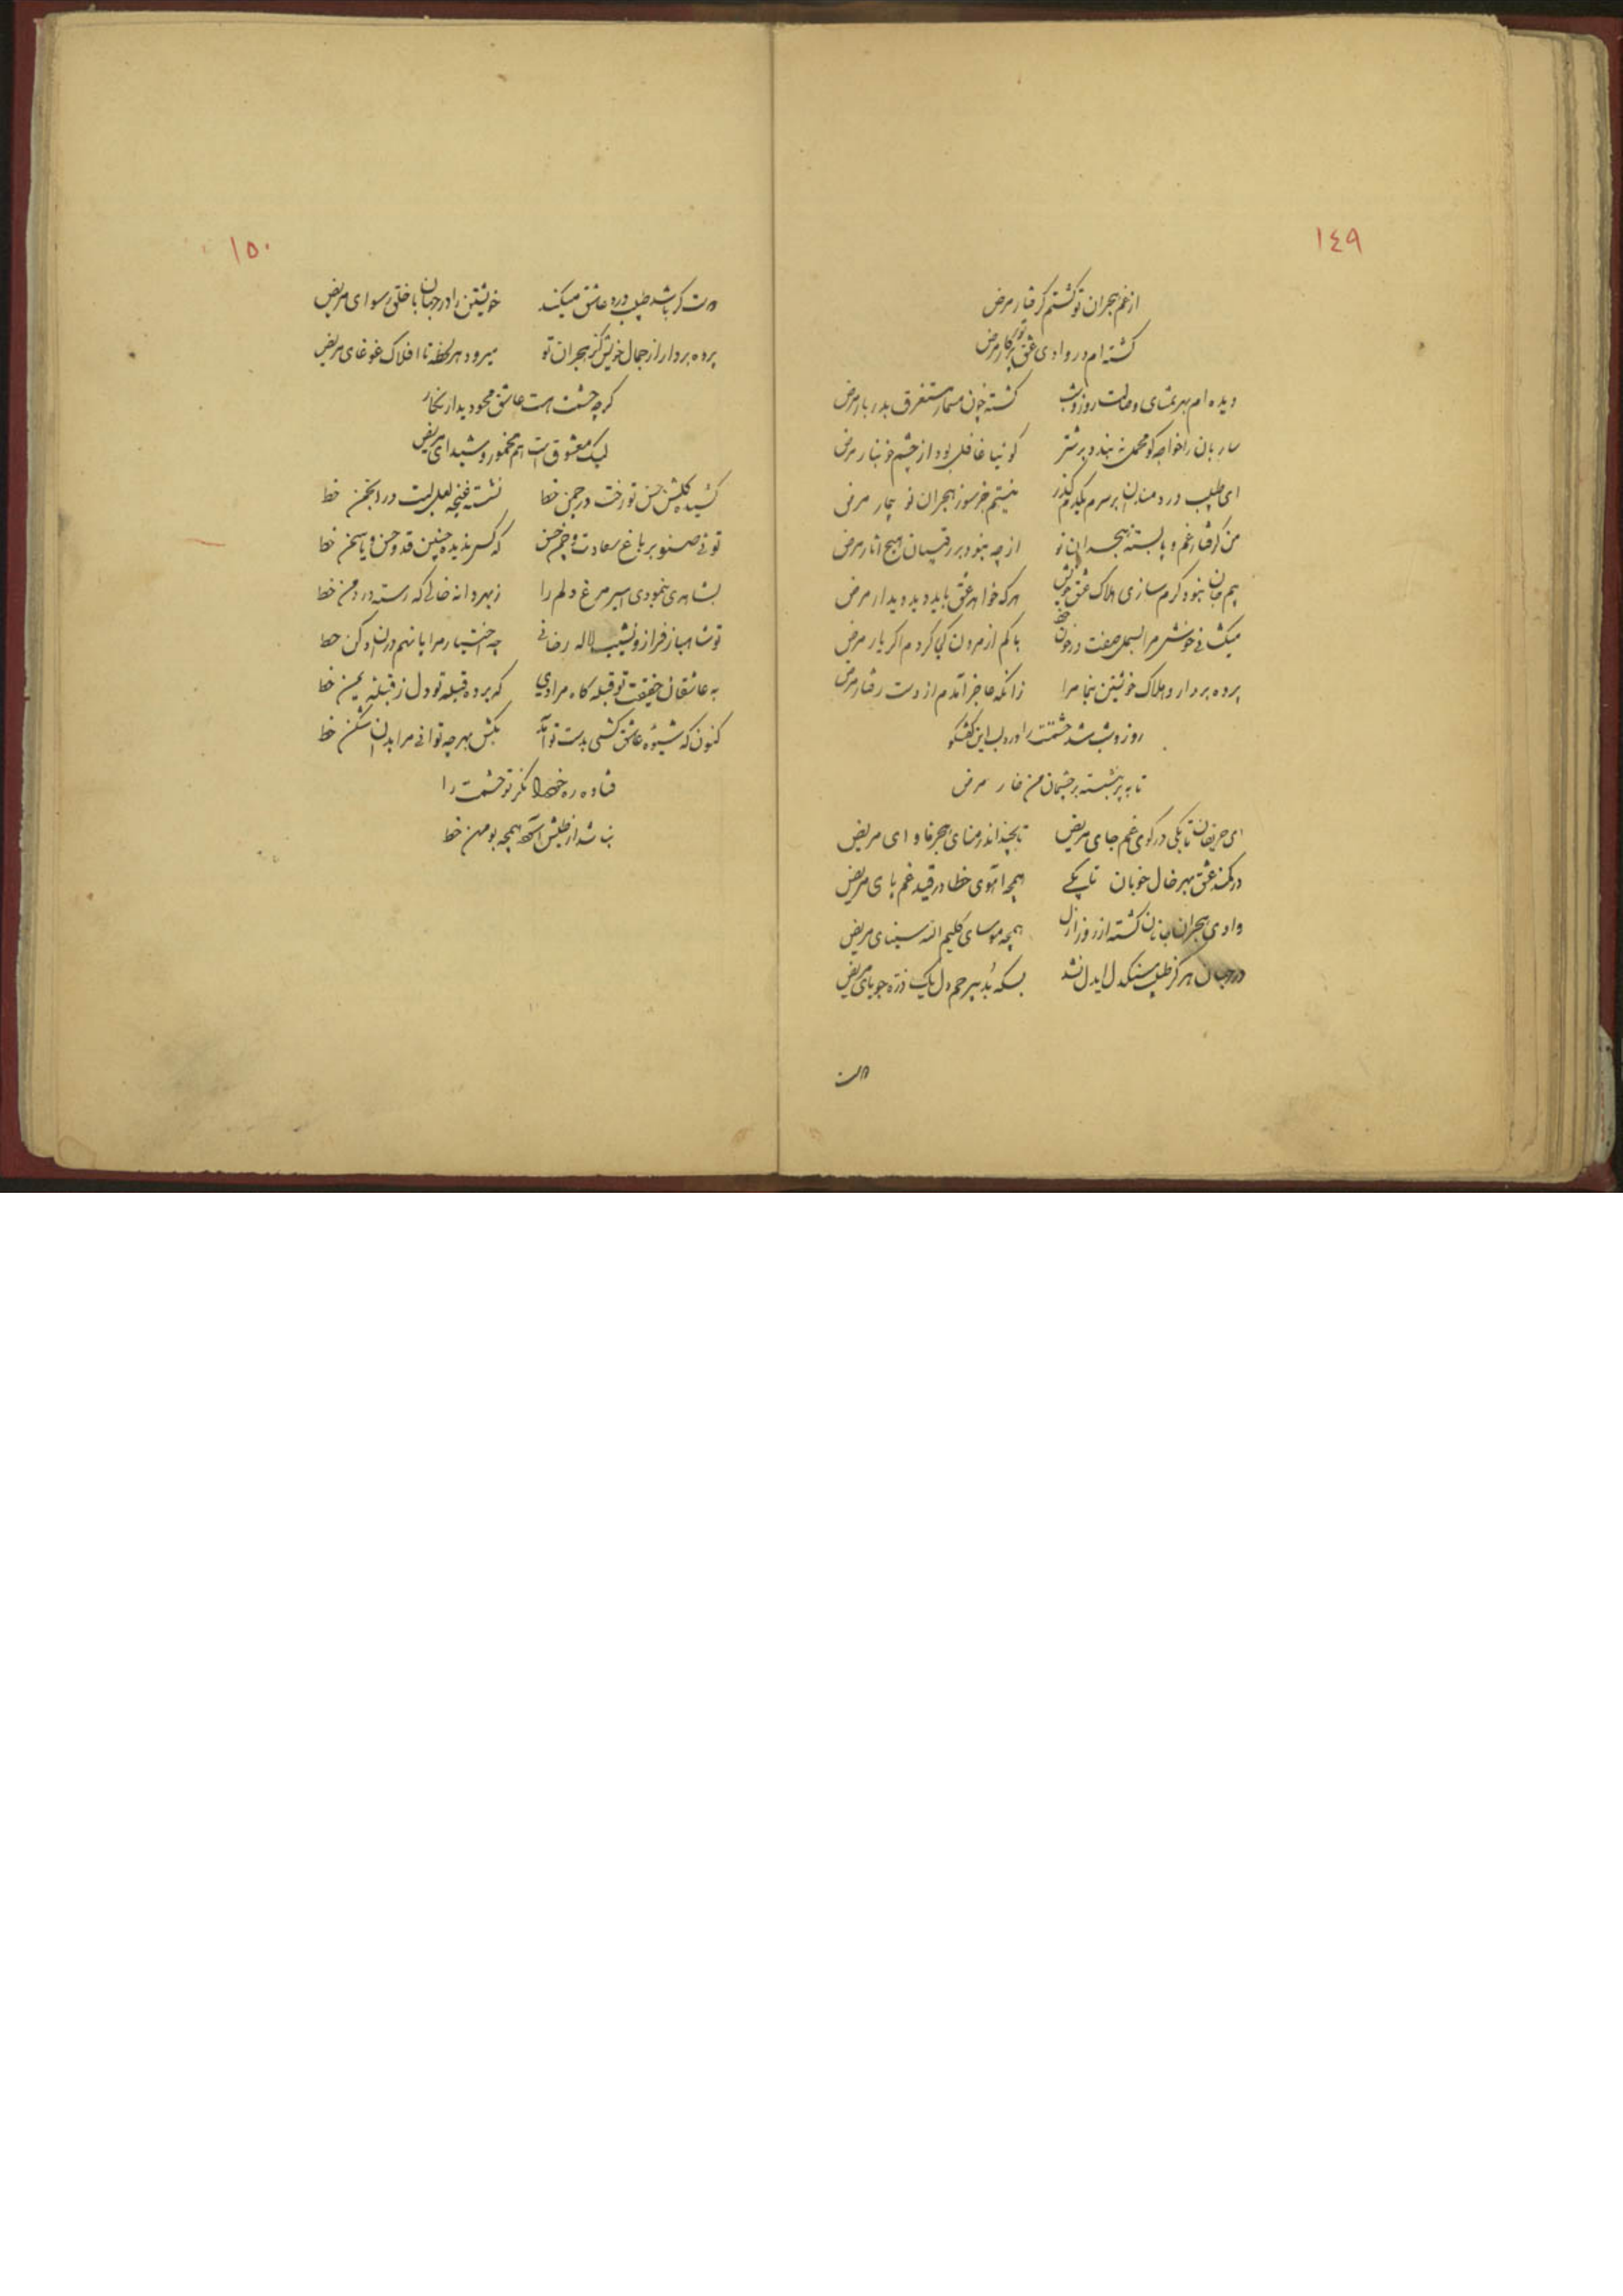 ١٤٩
از غم هجران تو کشتم کرفتار مرض
کشته ام در وادی عشق تو پرکار مرض
دیده ام بهر تماشای وصالت روز و شب کشته چون مسمار مستغرق بدربار مرض
ساربان را خواجه کو محمل نه بندد بر شتر کوئیا غافل بود از چشم خونبار مرض
ای طبیب دردمندان بر سرم یکدم کذر نیستم جز سوز هجران تو بیمار مرض
من کرفتار غم و پابسته هجران تو از چه نبود بر رقیبان هیچ آثار مرض
بیم جان نبود کرم سازی هلاک عشق خویش هر که خواهد عشق باید دید دیدار مرض
میکشی خوش مرا بسمل صفت در خون باکم از مردن کی کردم اکر یار مرض
پرده بردار و هلاک خویشتن بنما مرا زانکه عاجز آمدم از دست رفتار مرض
روز و شب شد حشمتت را ورد لب این کفتکو
تا به پر بنشسته بر چشمان من خار مرض
ای حریفان تا بکی در کوی غم جای مریض تا بچند اندر منای هجر ماوای مریض
در کمند عشق مهر خال خوبان تا بکے همچو آهوی خطا در قید غم پای مریض
وادی هجران جانان کشته از روز ازل همچه موسای کلیم الله سینای مریض
در جهان هرکز طبیب سنکدل ایدل نشد بسکه بُد بیرحم دل یک ذره جویای مریض
دست
١٥٠
دست کر باشد طبیب درد عاشق میکند خویشتن را در جهان با خلق رسوای مریض
پرده بردار از جمال خویش کز هجران تو میرود هر لحظه تا افلاک غوغای مریض
کرچه حشمت هست عاشق محو دیدار نکار
لیک معشوق است هم مخمور و شیدای مریض
کشیده کلشن حسن تو رخت در چمن خط نشسته غنچه لعل لبت در انجمن خط
توئی صنوبر باغ سعادت و چمن حسن که کس ندیده چنین قد و حسن و یاسمن خط
بشاهدی بنمودی اسیر مرغ دلم را ز بهر دانه خالی که رسته در دمن خط
تو شاهباز فراز و نشیب لاله رخانی چه اختیار مرا پا نهم در آن وکن خط
به عاشقان حقیقت تو قبله کاه مرادی که برده قبله تو دل ز قبله یمن خط
کنون که شیوه عاشق کشی بدست تو آمد بکش بهر چه توانی مرا بدان شکن خط
فتاده در ره خط نکر تو حشمت را
نباشد از طپش آسوده همچه بومهن خط